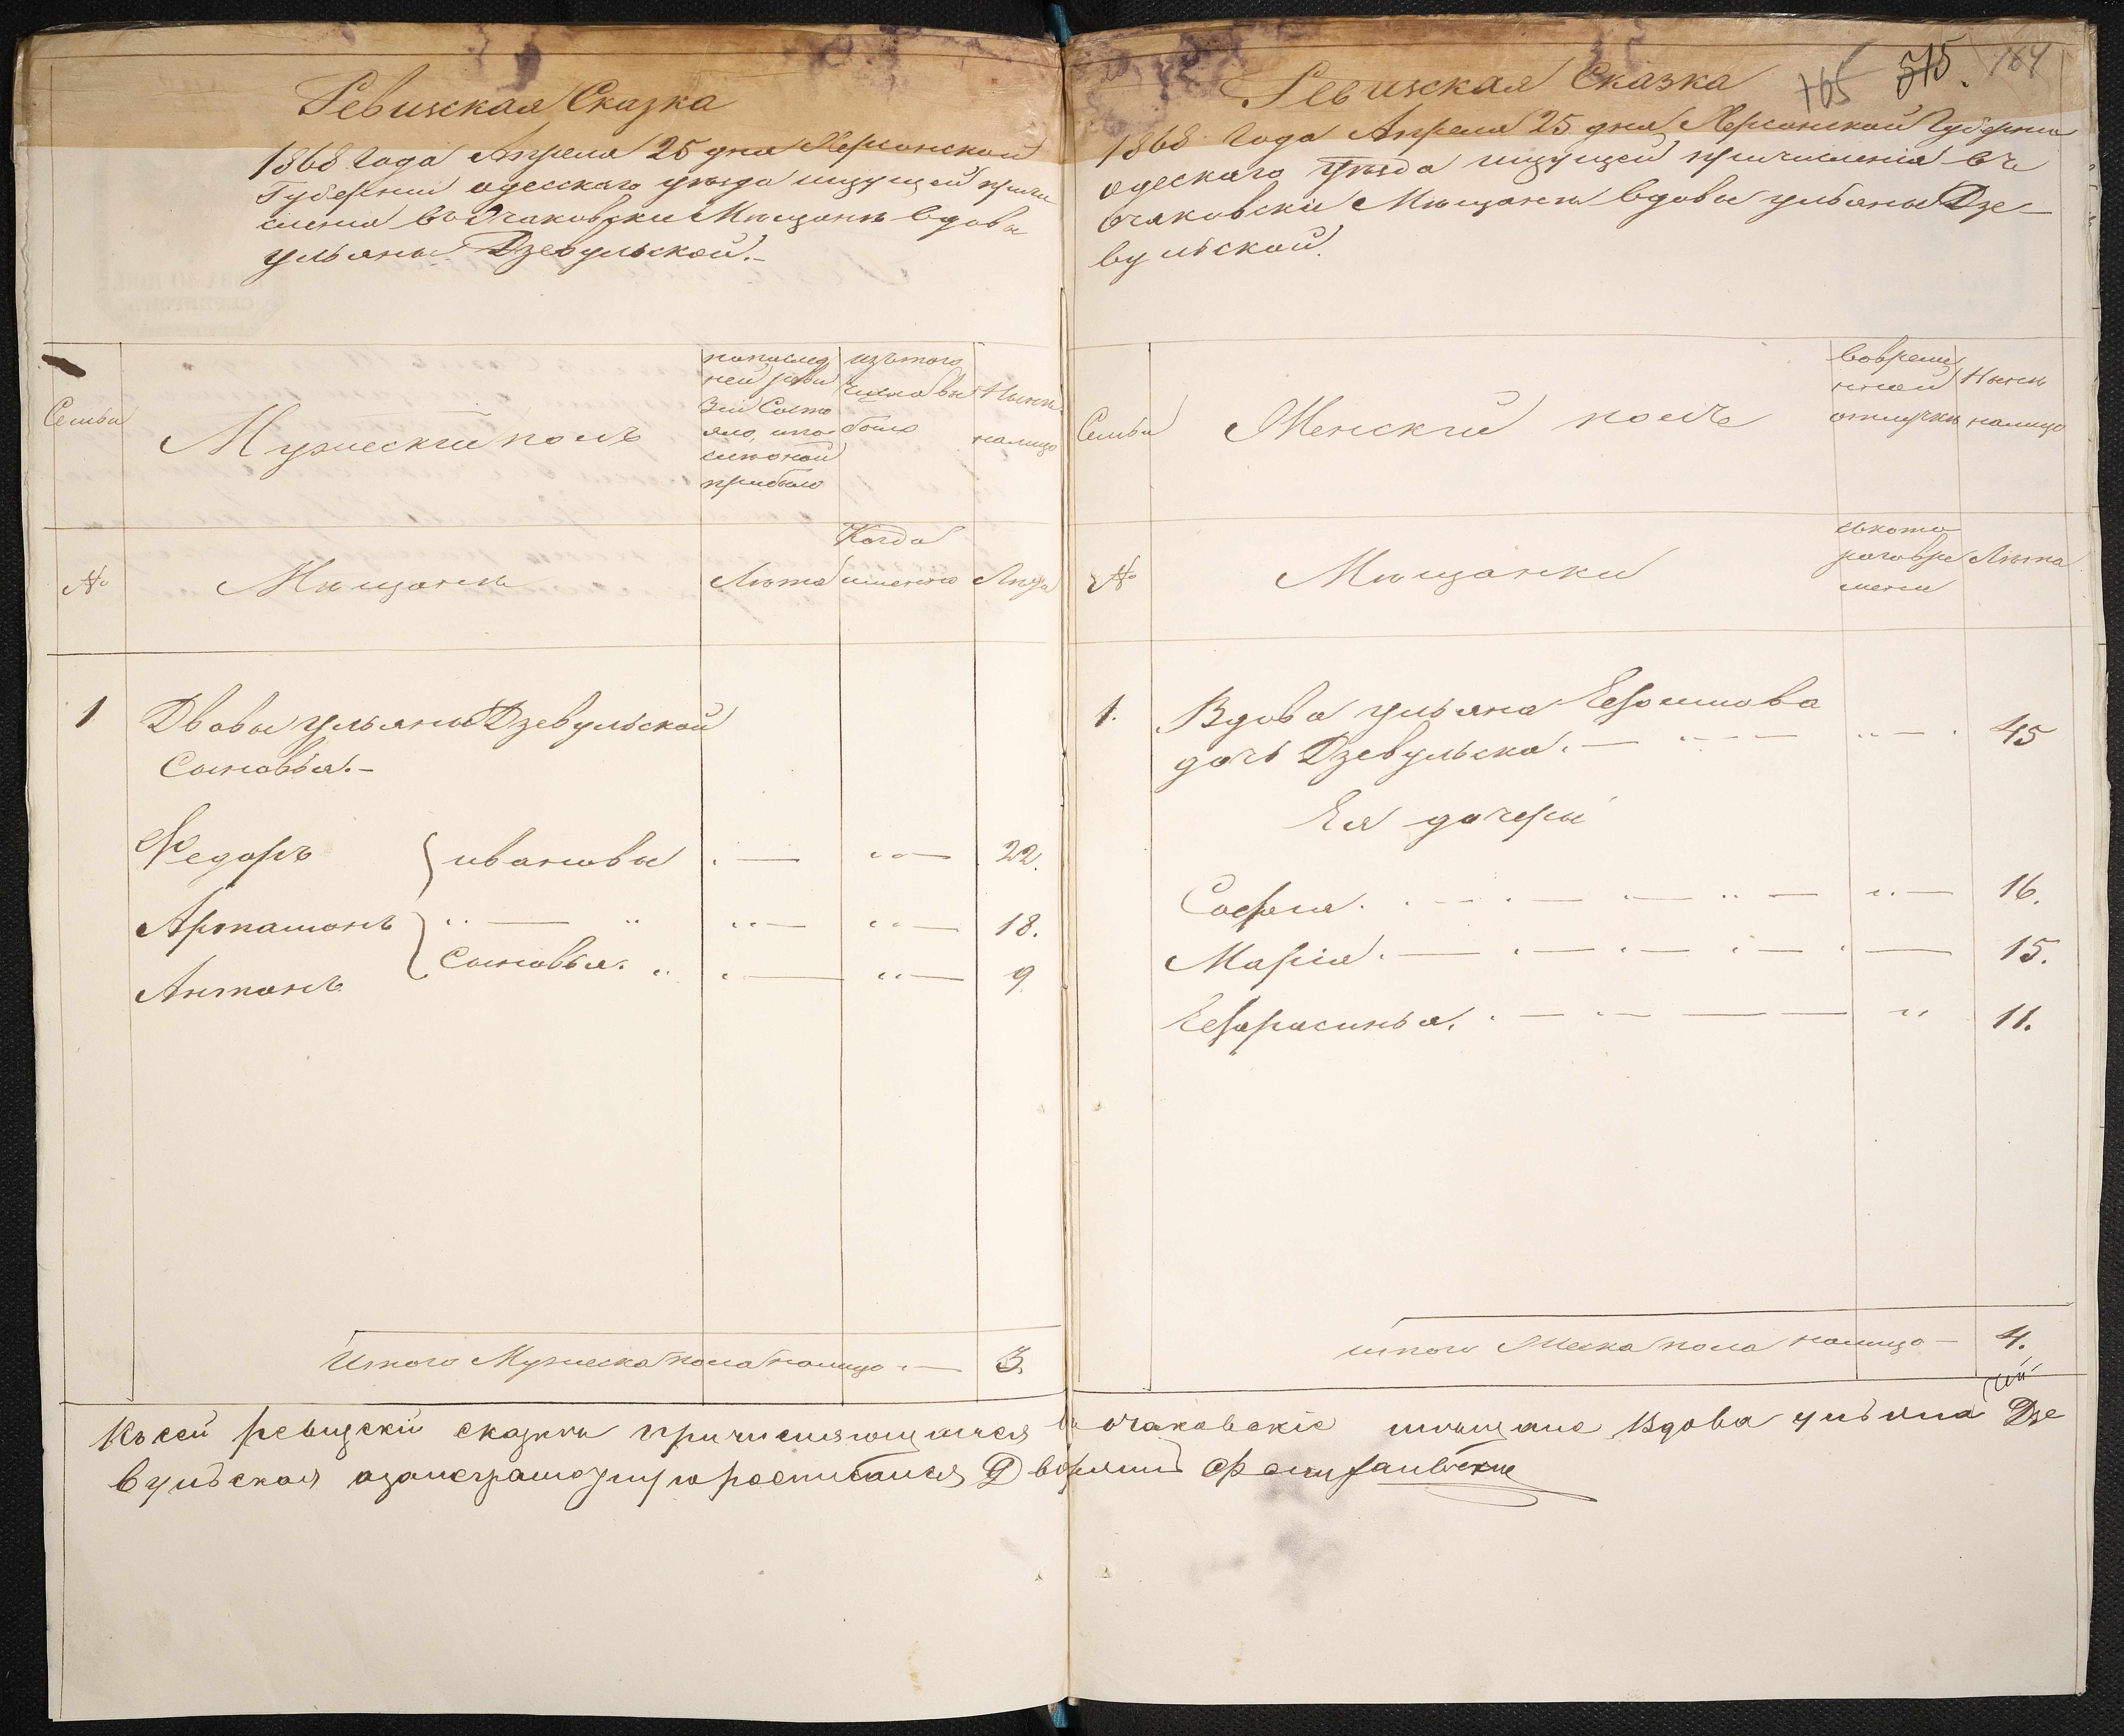 Ревизская Сказка
1868 года Апреля 25 дня Херсонской
Губерніи одесскаго уѣзда ищущей причи
сленія въ Очаковскіи Мѣщане вдовы
ульяны Дзевульской.-
Семьи
Мужескій полъ
попослед
ней реви
зіи Состо
яло, ипо
слѣоной
прибыло
изътого
числа вы
было
Нынѣ
налицо
№
Мѣщане
Лѣта
Когда
именно
Лѣта
1
Двовы ульяны Дзевульской
Сыновья.-
Федоръ
ивановы
22.
Артамонъ
18.
Сыновья.
Антонъ
9
Итого Мужеска пола налицо
3.
165 515. 164
Ревизская Сказка
1868 года Апреля 25 дня Херсонской Губерніи
одескаго уѣзда ищущей причисленія въ
очаковскіе Мѣщане вдовы ульяны Дзе-
вульской.
Семьи
Женскій полъ
вовреме
нной
отлучкѣ
Нынѣ
налицо
№
Мѣщанки
съкото
раговре
мени
Лѣта
1.
Вдова ульяна Ефимова
дочь Дзевульска.
45
Ея дочеры
Софія.
16.
Марія.
15.
Ефросинья.
11.
итого Жеска пола налицо
4.
Къ сей ревизскіи сказки причисляющаяся въ очаковскіе мещане Вдова ульяна Дзе
вульская азанеграмотную росписался Дворянинъ